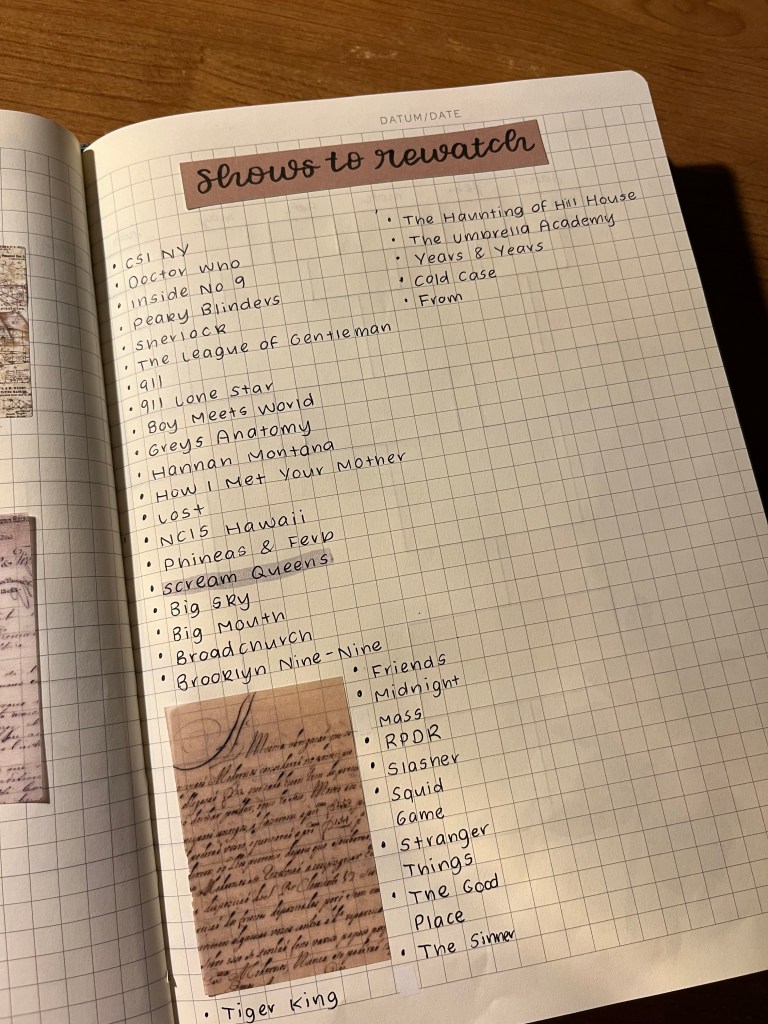 DATUM/DATE
shows to rewatch
• CSI NY
• Doctor Who
• Inside No 9
• Peaky Blinders
• Sherlock
• The League of Gentleman
• 911
• 911 Lone Star
• Boy Meets World
• Greys Anatomy
• Hannah Montana
• How I Met Your Mother
• Lost
• NCIS Hawaii
• Phineas & Ferb
• Scream Queens
• Big Sky
• Big Mouth
• Broadchurch
• Brooklyn Nine-Nine
• Friends
• Midnight
Mass
• RPDR
• Slasher
• Squid
Game
• Stranger
Things
• The Good
Place
• The Sinner
• Tiger King
• The Haunting of Hill House
• The Umbrella Academy
• Years & Years
• Cold Case
• From